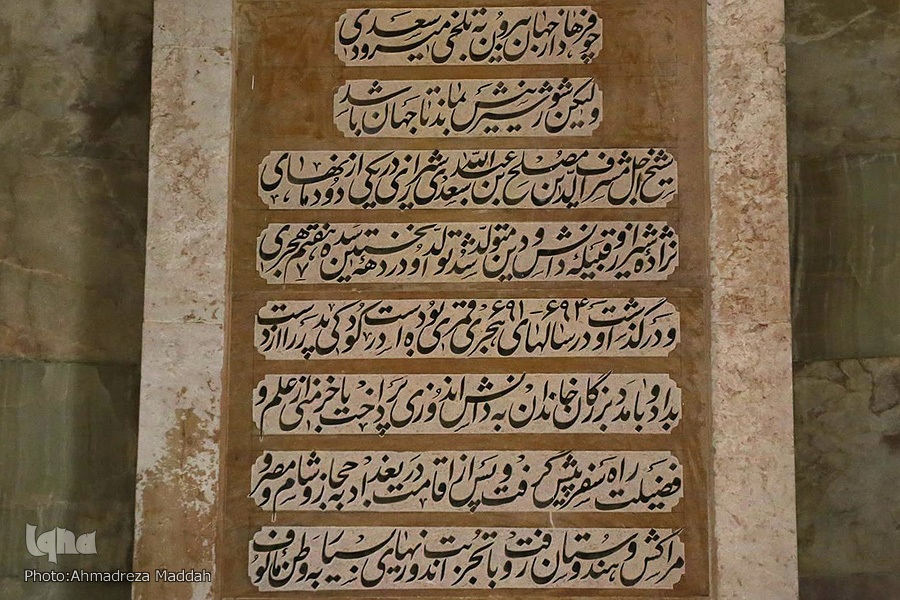 چو فرهاد از جهان بیرون به تلخی میرود سعدی
ولیکن شور شیرینش بماند تا جهان باشد
شیخ اجل مشرف الدین مصلح بن عبدالله سعدی شیرازی در یکی از دودمانهای
نژاده شیراز و قبیله دانش و دین متولد شد تولد او در دههٔ نخستین سدهٔ هفتم هجری
و درگذشت او در سالهای ۶۹۱ ۶۹۴ هجری قمری بوده است در کودکی پدر را از دست
بداد و با مدد بزرگان خاندان به دانش اندوزی پرداخت با خرمنی از علم و
فضیلت راه سفر پیش گرفت و پس از اقامت در بغداد به حجاز و شام و مصر و
مراکش و هندوستان رفت و با تجربت اندوزیهای بسیار به وطن مألوف
Iqna
Photo:Ahmadreza Maddah